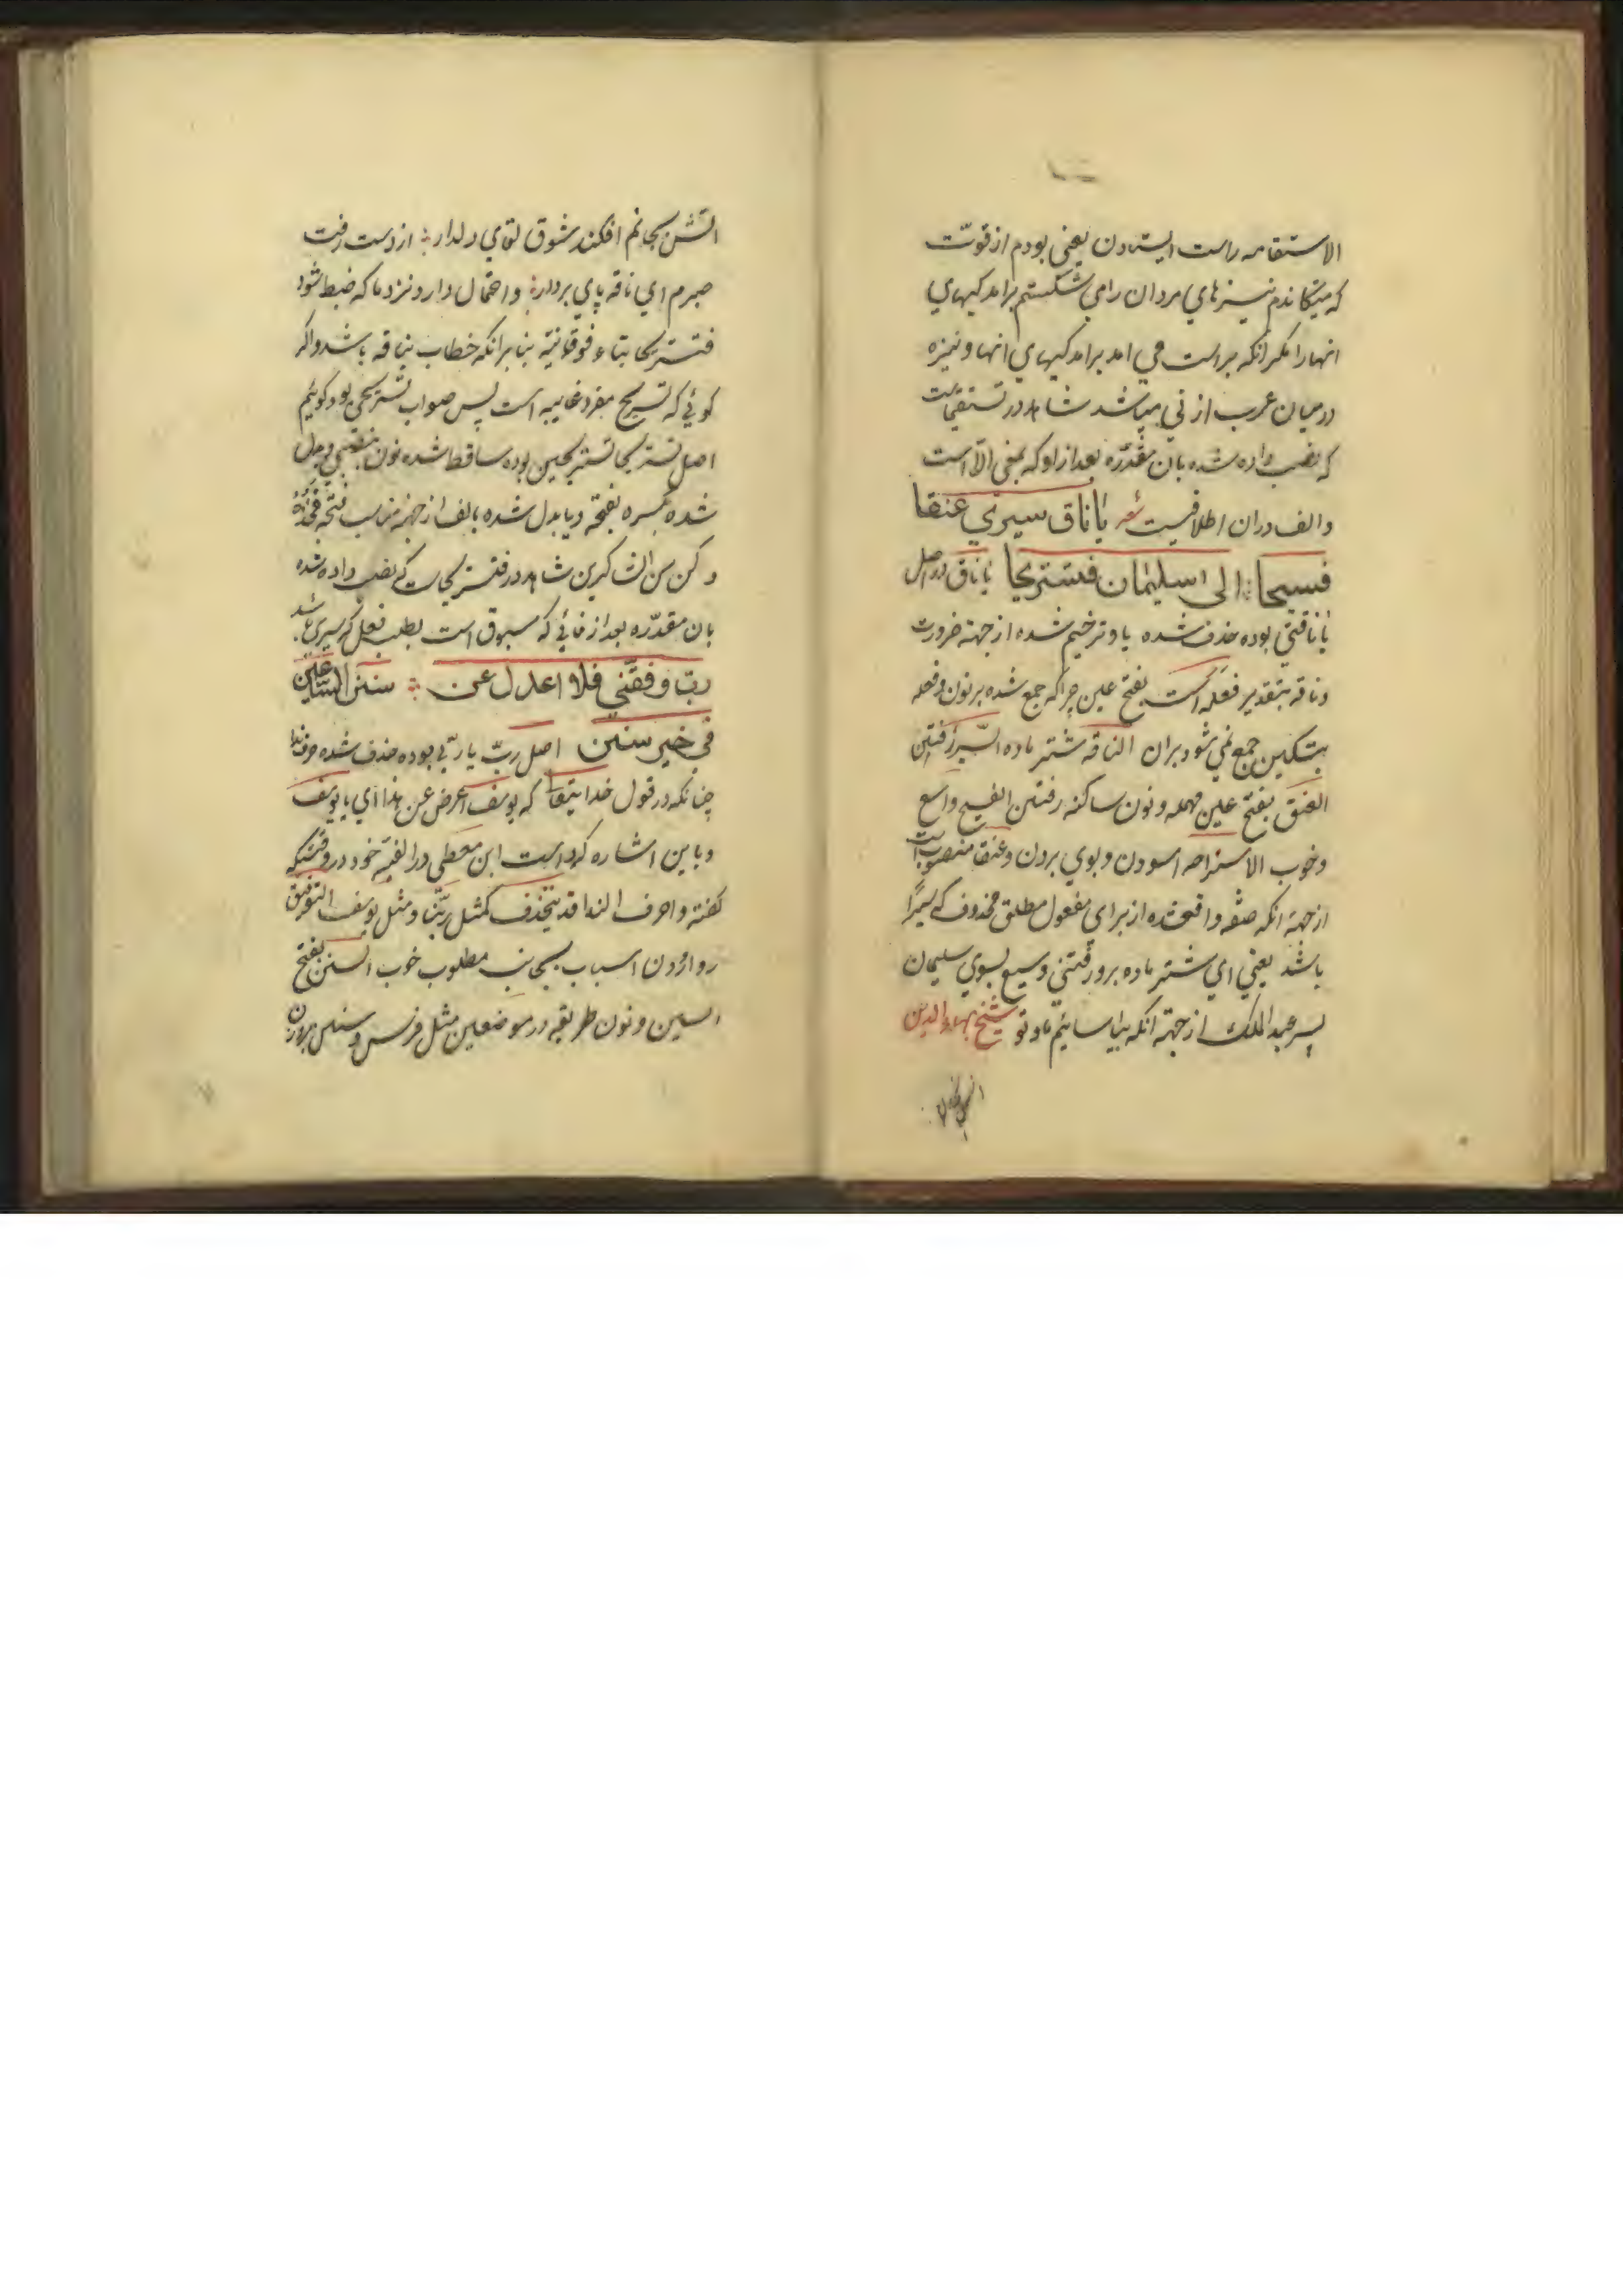 الاستقامه راست ایستادن یعنی بودم از قوت
که میتکاندم نیزهای مردان را می شکستم برامدکیهای
انها را مکر انکه براست می امد برامدکیهای انها و نیزه
درمیان عرب از نی میباشد شاهد در تستقیماست
که نصب داده شده بان مقدّره بعد از او که بمعنی الّا است
والف دران اطلاقیست شعر یا ناق سیری عنقا
فسیحا الی سلیمان فنستریحا یا ناق در اصل
یا ناقتی بوده حذف شده یا و ترخیم شده از جهة ضرورت
وناقه بتقدیر فعله است بفتح عین چراکه جمع شده بر نون و فعله
بتسکین جمع نمی شود بران الناقه شتر ماده السّیر رفتن
العنق بفتح عین مهمله و نون ساکنه رفتن الفسیح واسع
وخوب الاستراحه اسودن و بوی بردن و عنقا منصوبست
از جهة انکه صفه واقعشده از برای مفعول مطلق محذوف که سیرًا
باشد یعنی ای شتر ماده برو رفتنی وسیع بسوی سلیمان
پسر عبد الملک از جهة انکه بیاسائیم ما و تو شیخ بهاء الدین
اتش بجانم
اتش بجانم افکند شوق لقای دلدار از دست رفت
صبرم ای ناقه پای بردار و احتمال دارد نزد ما که ضبط شود
فتستریحا بتاء فوقانیّه بنا برانکه خطاب بناقه باشد واکر
کوئی که تستریح مفرد غایبه است پس صواب تستریحی بود کوئیم
اصل تستریحا تستریحین بوده ساقط شده نون بنصبی و بدل
شده کسره بفتحه و یا بدل شده بالف از جهة مناسبت فتحه فخذه
وکن من الشاکرین شاهد در فتستریحاست که نصب داده شده
بان مقدّره بعد از فائی که مسبوق است بطلب فعل که سیری باشد
ربّ وفقنی فلا اعدل عن سنن الساعین
فی خیر سنن اصل ربّ یا ربّی بوده حذف شده حرف ندا
چنانکه در قول خدایتعالی که یوسف اعرض عن هذا ای یا یوسف
و باین اشاره کرده است ابن معطی در الفیّه خود در وقتیکه
کفته و احرف الندا قد تنحذف کمثل ربّنا و مثل یوسف التوفیق
رو اوردن اسباب بجانب مطلوب خوب السنن بفتح
السین و نون طریقه در موضعین مثل فرس و سنن بروزن